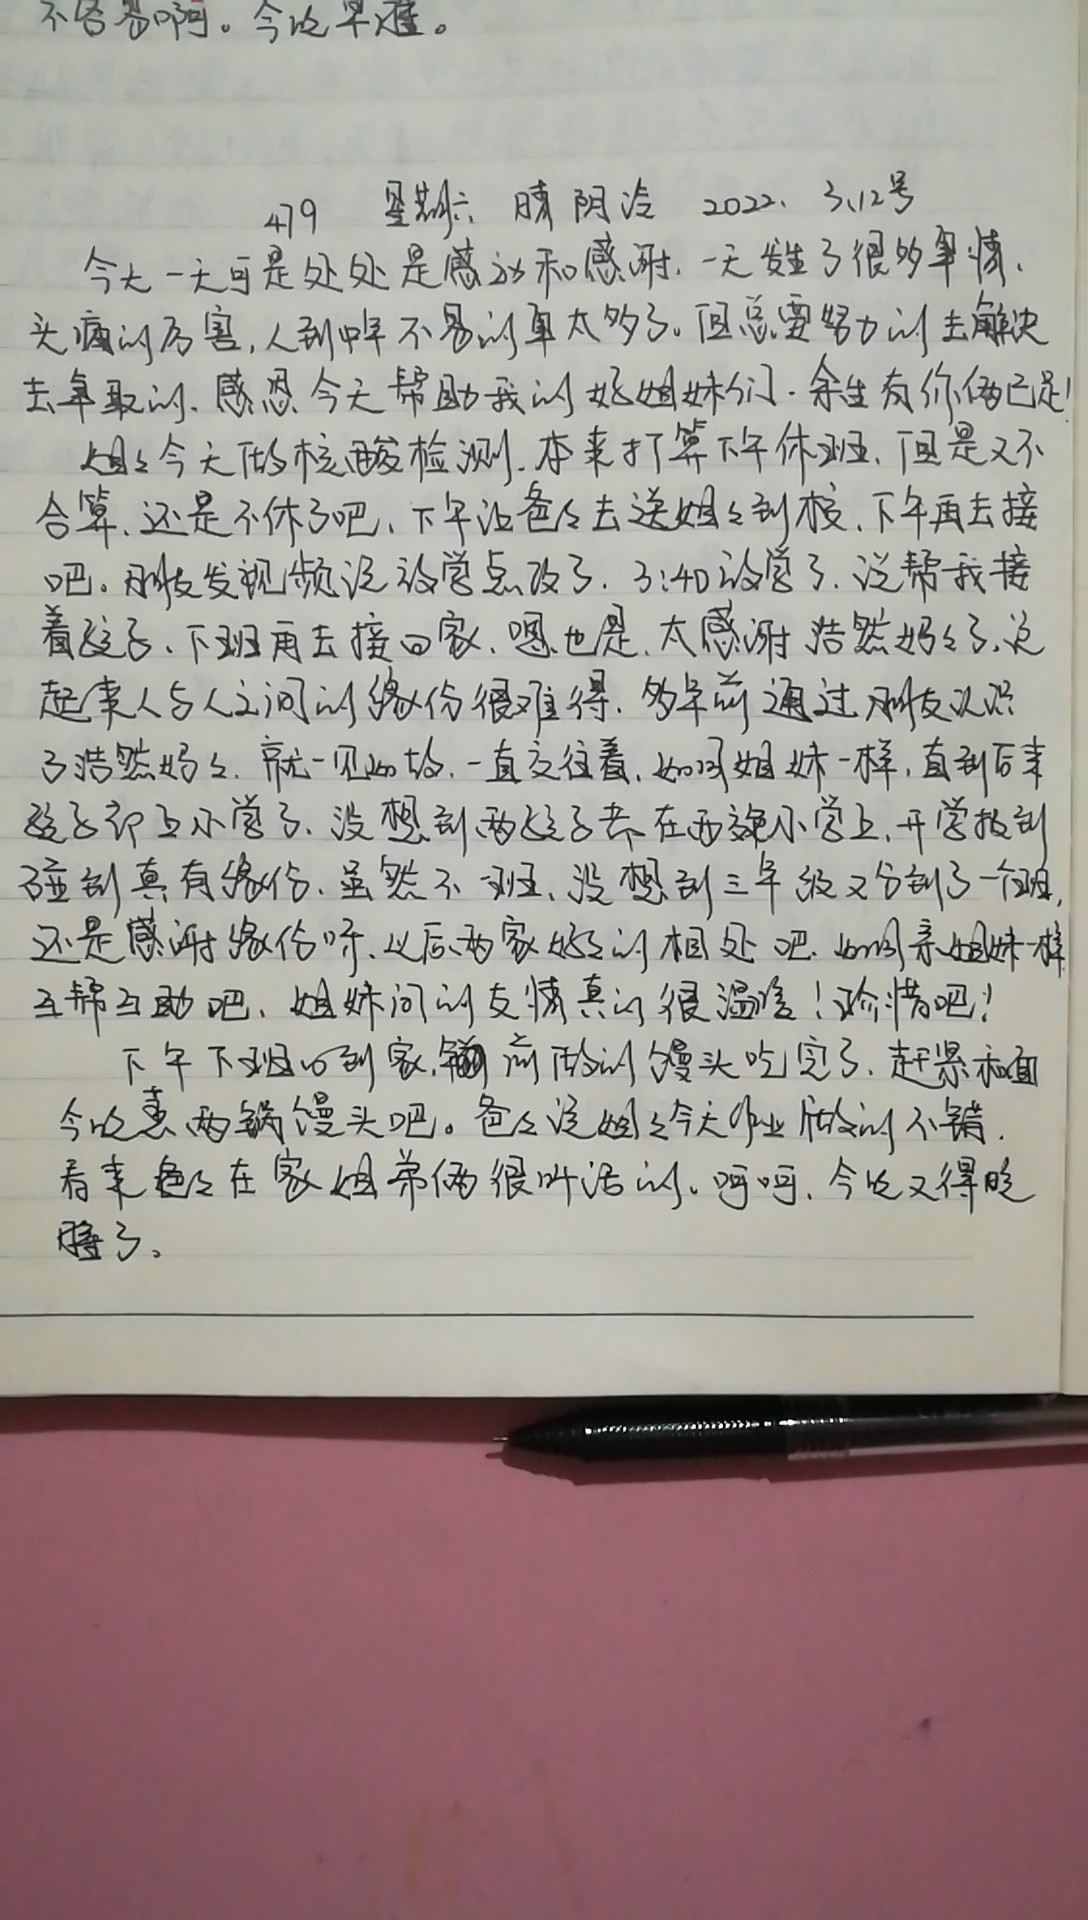 不容易啊。今晚早睡。
479 星期六 晴 阴冷 2022、3、12号
今天一天可是处处是感动和感谢、一天发生了很多事情、
头痛的厉害，人到中年不易的事太多了。但总要努力的去解决
去争取的、感恩今天帮助我的好姐妹们、余生有你俩已足！
姐姐今天做核酸检测、本来打算下午休班、但是又不
合算、还是不休了吧、下午让爸爸去送姐姐到校、下午再去接
吧。朋友发视频说放学点改了、3:40放学了、说帮我接
着孩子、下班再去接回家、嗯也是、太感谢浩然妈妈了、说
起来人与人之间的缘份很难得、多年前通过朋友认识
了浩然妈妈、就一见如故、一直交往着、如同姐妹一样，直到后来
孩子都上小学了、没想到两孩子都在西苑小学上、开学报到
碰到真有缘份、虽然不一班、没想到三年级又分到了一个班，
还是感谢缘份呀、以后两家好好的相处吧、如同亲姐妹一样
互帮互助吧、姐妹间的友情真的很温暖！珍惜吧！
下午下班回到家、前做的馒头吃完了、赶紧和面
今晚蒸两锅馒头吧。爸爸说姐姐今天作业做的不错、
看来爸爸在家姐弟俩很听话的、呵呵、今晚又得晚
睡了。